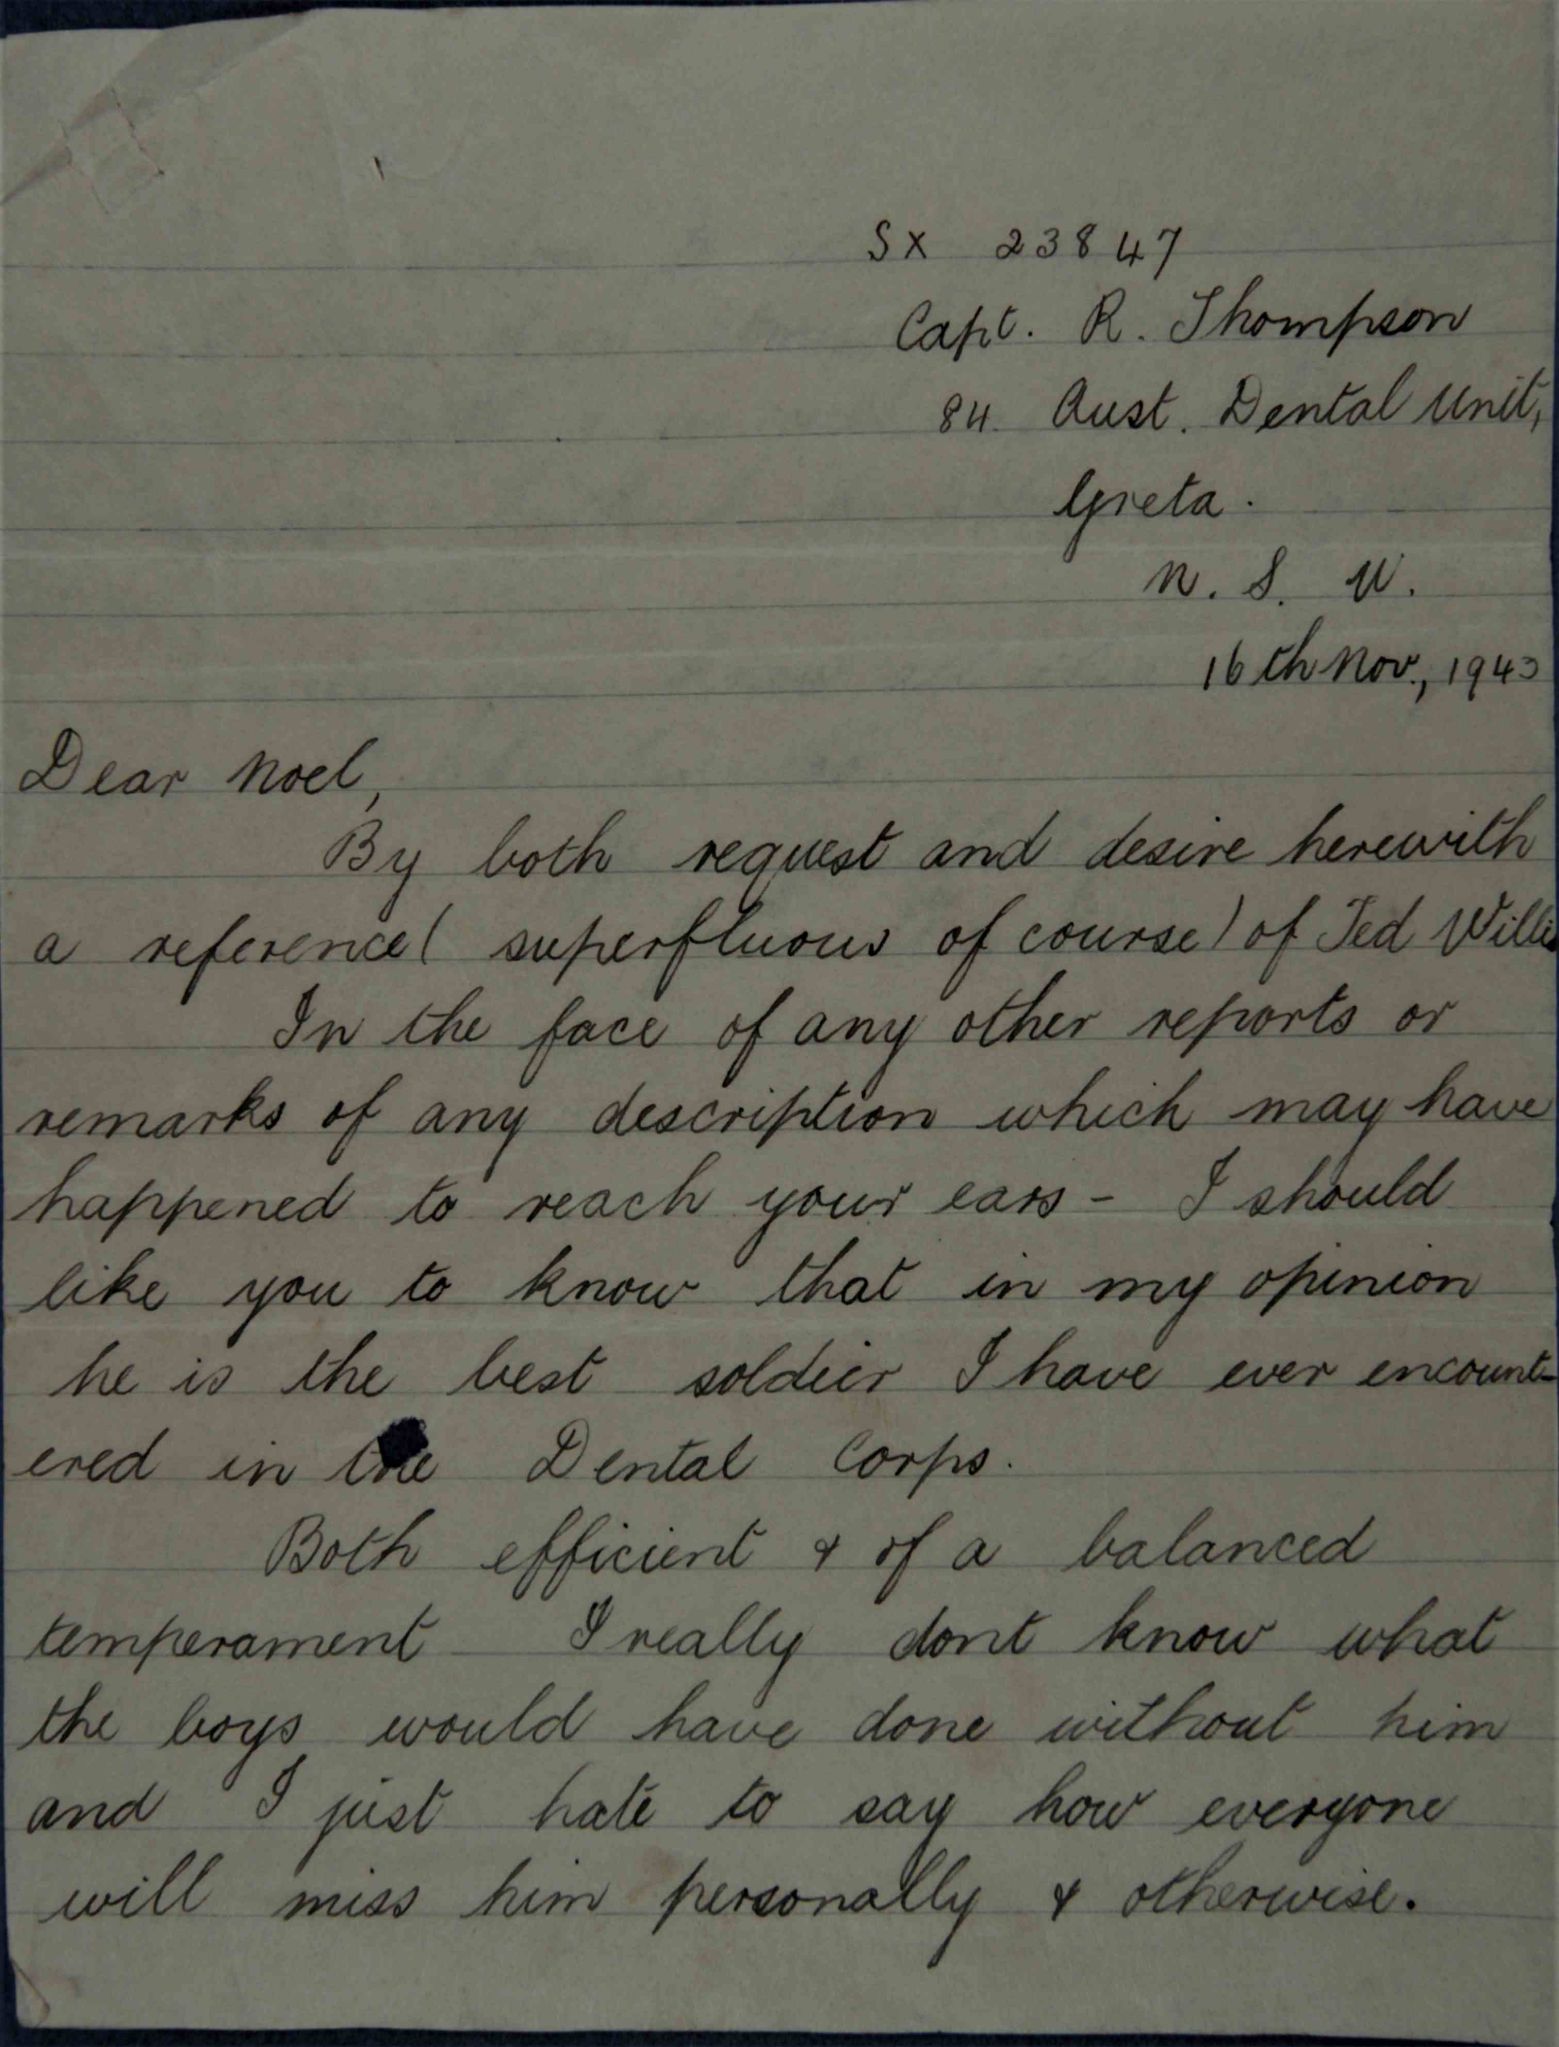 SX 23847
Capt. R. Thompson
84 Aust. Dental Unit,
Greta.
N. S. W.
16th Nov., 1943
Dear Noel,
By both request and desire herewith
a reference (superfluous of course) of Ted Willis
In the face of any other reports or
remarks of any description which may have
happened to reach your ears - I should
like you to know that in my opinion
he is the best soldier I have ever encount-
ered in the Dental Corps.
Both efficient & of a balanced
temperament I really dont know what
the boys would have done without him
and I just hate to say how everyone
will miss him personally & otherwise.